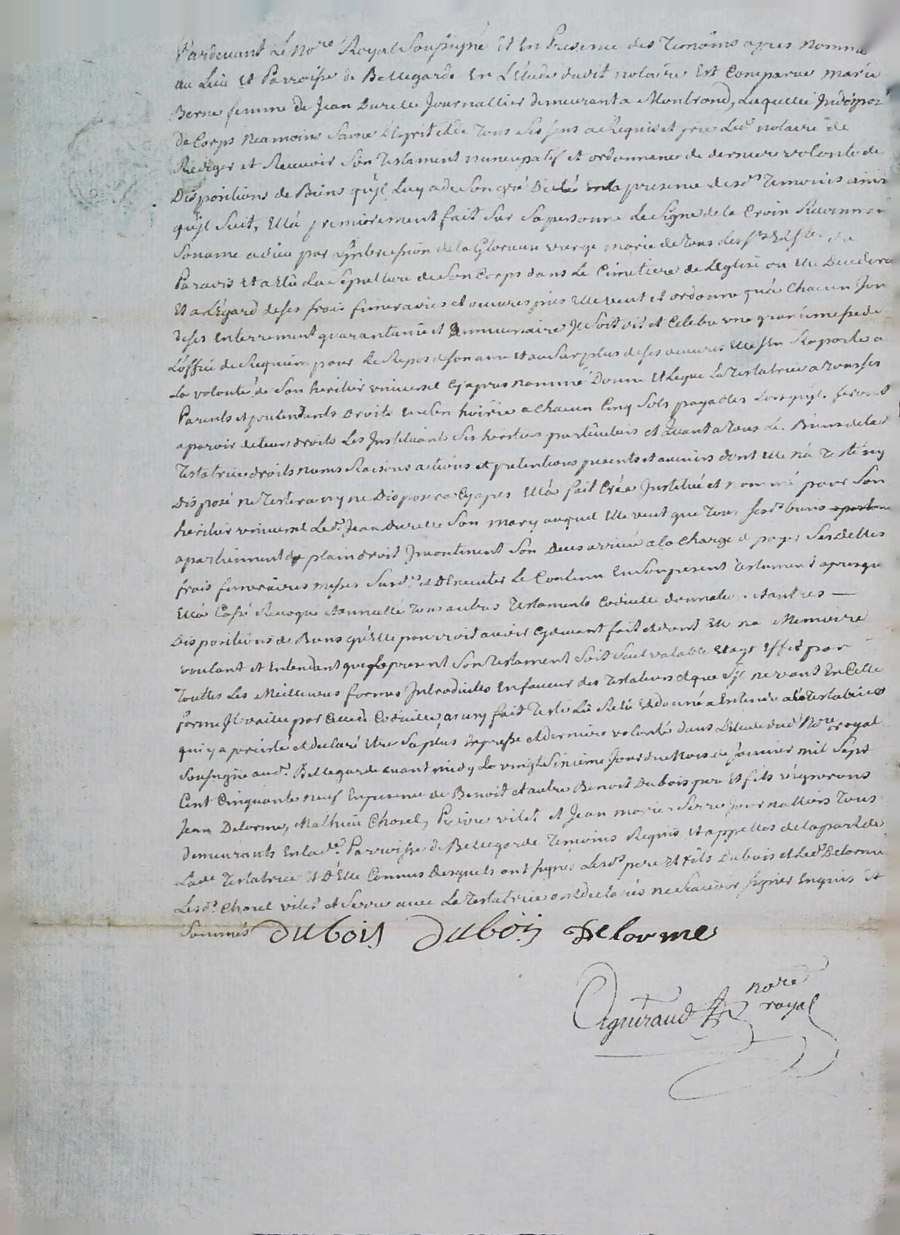 Pardevant Le Nore Royal Soussigné Et En Presence des Temoins apres nommé
au Lieu Et Parroisse de Bellegarde En L'étude dudit notaire Est Comparue marie
Berne femme de Jean Durelle Journallier demeurant a Montrond, Laquelle Indispoz
de Corps Neamoins Saine d'Esprit Et de Tous Ses sens a Requis et prie Led. notaire de
Rediger et Recevoir Son Testament nuncupatif et ordonnance de derniere volonté de
Dispositions de Biens qu'Il Luy a de Son gré Dicté En la presence desd. Temoins ainsi
qu'Il Suit, Ella premierement fait Sur Sa personne Le Signe de la Croix Recommen
Son ame a dieu par L'Intercession de la Glorieuse vierge marie de Tous Les Sts Et Stes
Paravis Et a Elu La Sepulture de Son Corps dans Le Cimetiere de L'Eglise ou Elle Decedera
Et a L'Egard de ses frais funeraires et oeuvres pies Elle veut et ordonne qu'a Chacun Jour
de ses Enterrement quarantaine et annuersaire Il Soit dit et Celebré une grande messe de
L'office de Requiem pour Le Repos de Son ame Et au Surplus de ses oeuvres Elle S'En Raporte a
La volonté de Son heritier universel Cy apres nommé Donne Et Legue La Testatrice a Tous ses
Parents et pretendants droits En Son hoirie a Chacun Cinq Sols payables Lorsqu'Ils feront
aparoir de leurs droits Les Instituants Ses heritiers particuliers et Quant a Tous Les Biens de lad.
Testatrice droits noms Raisons actions et pretentions presents et avenirs dont Elle n'a Testé ny
Disposé ne Testera ny ne Disposera Cy apres Ella fait Créé Institué et nommé pour Son
heritier universel Led. Jean Durelle Son mary auquel Elle veut que Tous Sesd. biens
apartiennent de plain droit Incontinent Son Deces arrivé a la Charge de payer Ses Dettes
frais funeraires messes Susd. et D'Executer Le Contenu En Son present Testament apres que
Ella Cassé Revoqué et annullé Tous autres Testaments Codicille donnation et autres —
Dispositions de Biens qu'Elle pourroit avoir Cy devant fait et dont Elle n'a Memoire
voulant et Entendant que le present Son Testament Soit Seul valable Et ayt Effet par
Toutes Les Meilleures formes Introduites En faveur des Testateurs et que S'Il ne vaut En Cette
forme Il vaille par Celle de Codicille, ainsy fait Testé Lû Relû Et donné a Entendre a la Testatrice
qui y a persisté et declaré Etre Sa plus Expresse et derniere volonté dans L'Etude dud. Nore royal
Soussigné aud. Bellegarde avant midy Le vingt Sixieme Jour du Mois de janvier mil Sept
Cent Cinquante neuf En presence de Benoit et autre Benoit Dubois pere Et fils vignerons
Jean Delorme, Mathieu Chorel, Pierre vilet et Jean marie Serre journalliers Tous
demeurants En lad. Parroisse de Bellegarde Temoins Requis et appellés de la part de
Lade Testatrice Et d'Elle Connus Desquels ont Signé Lesd. pere Et fils Dubois et Led. Delorme
Lesd. Chorel vilet et Serre avec La Testatrice ont declarés ne Scavoir Signer Enquis Et
Sommés dubois dubois Delorme
nore
royal